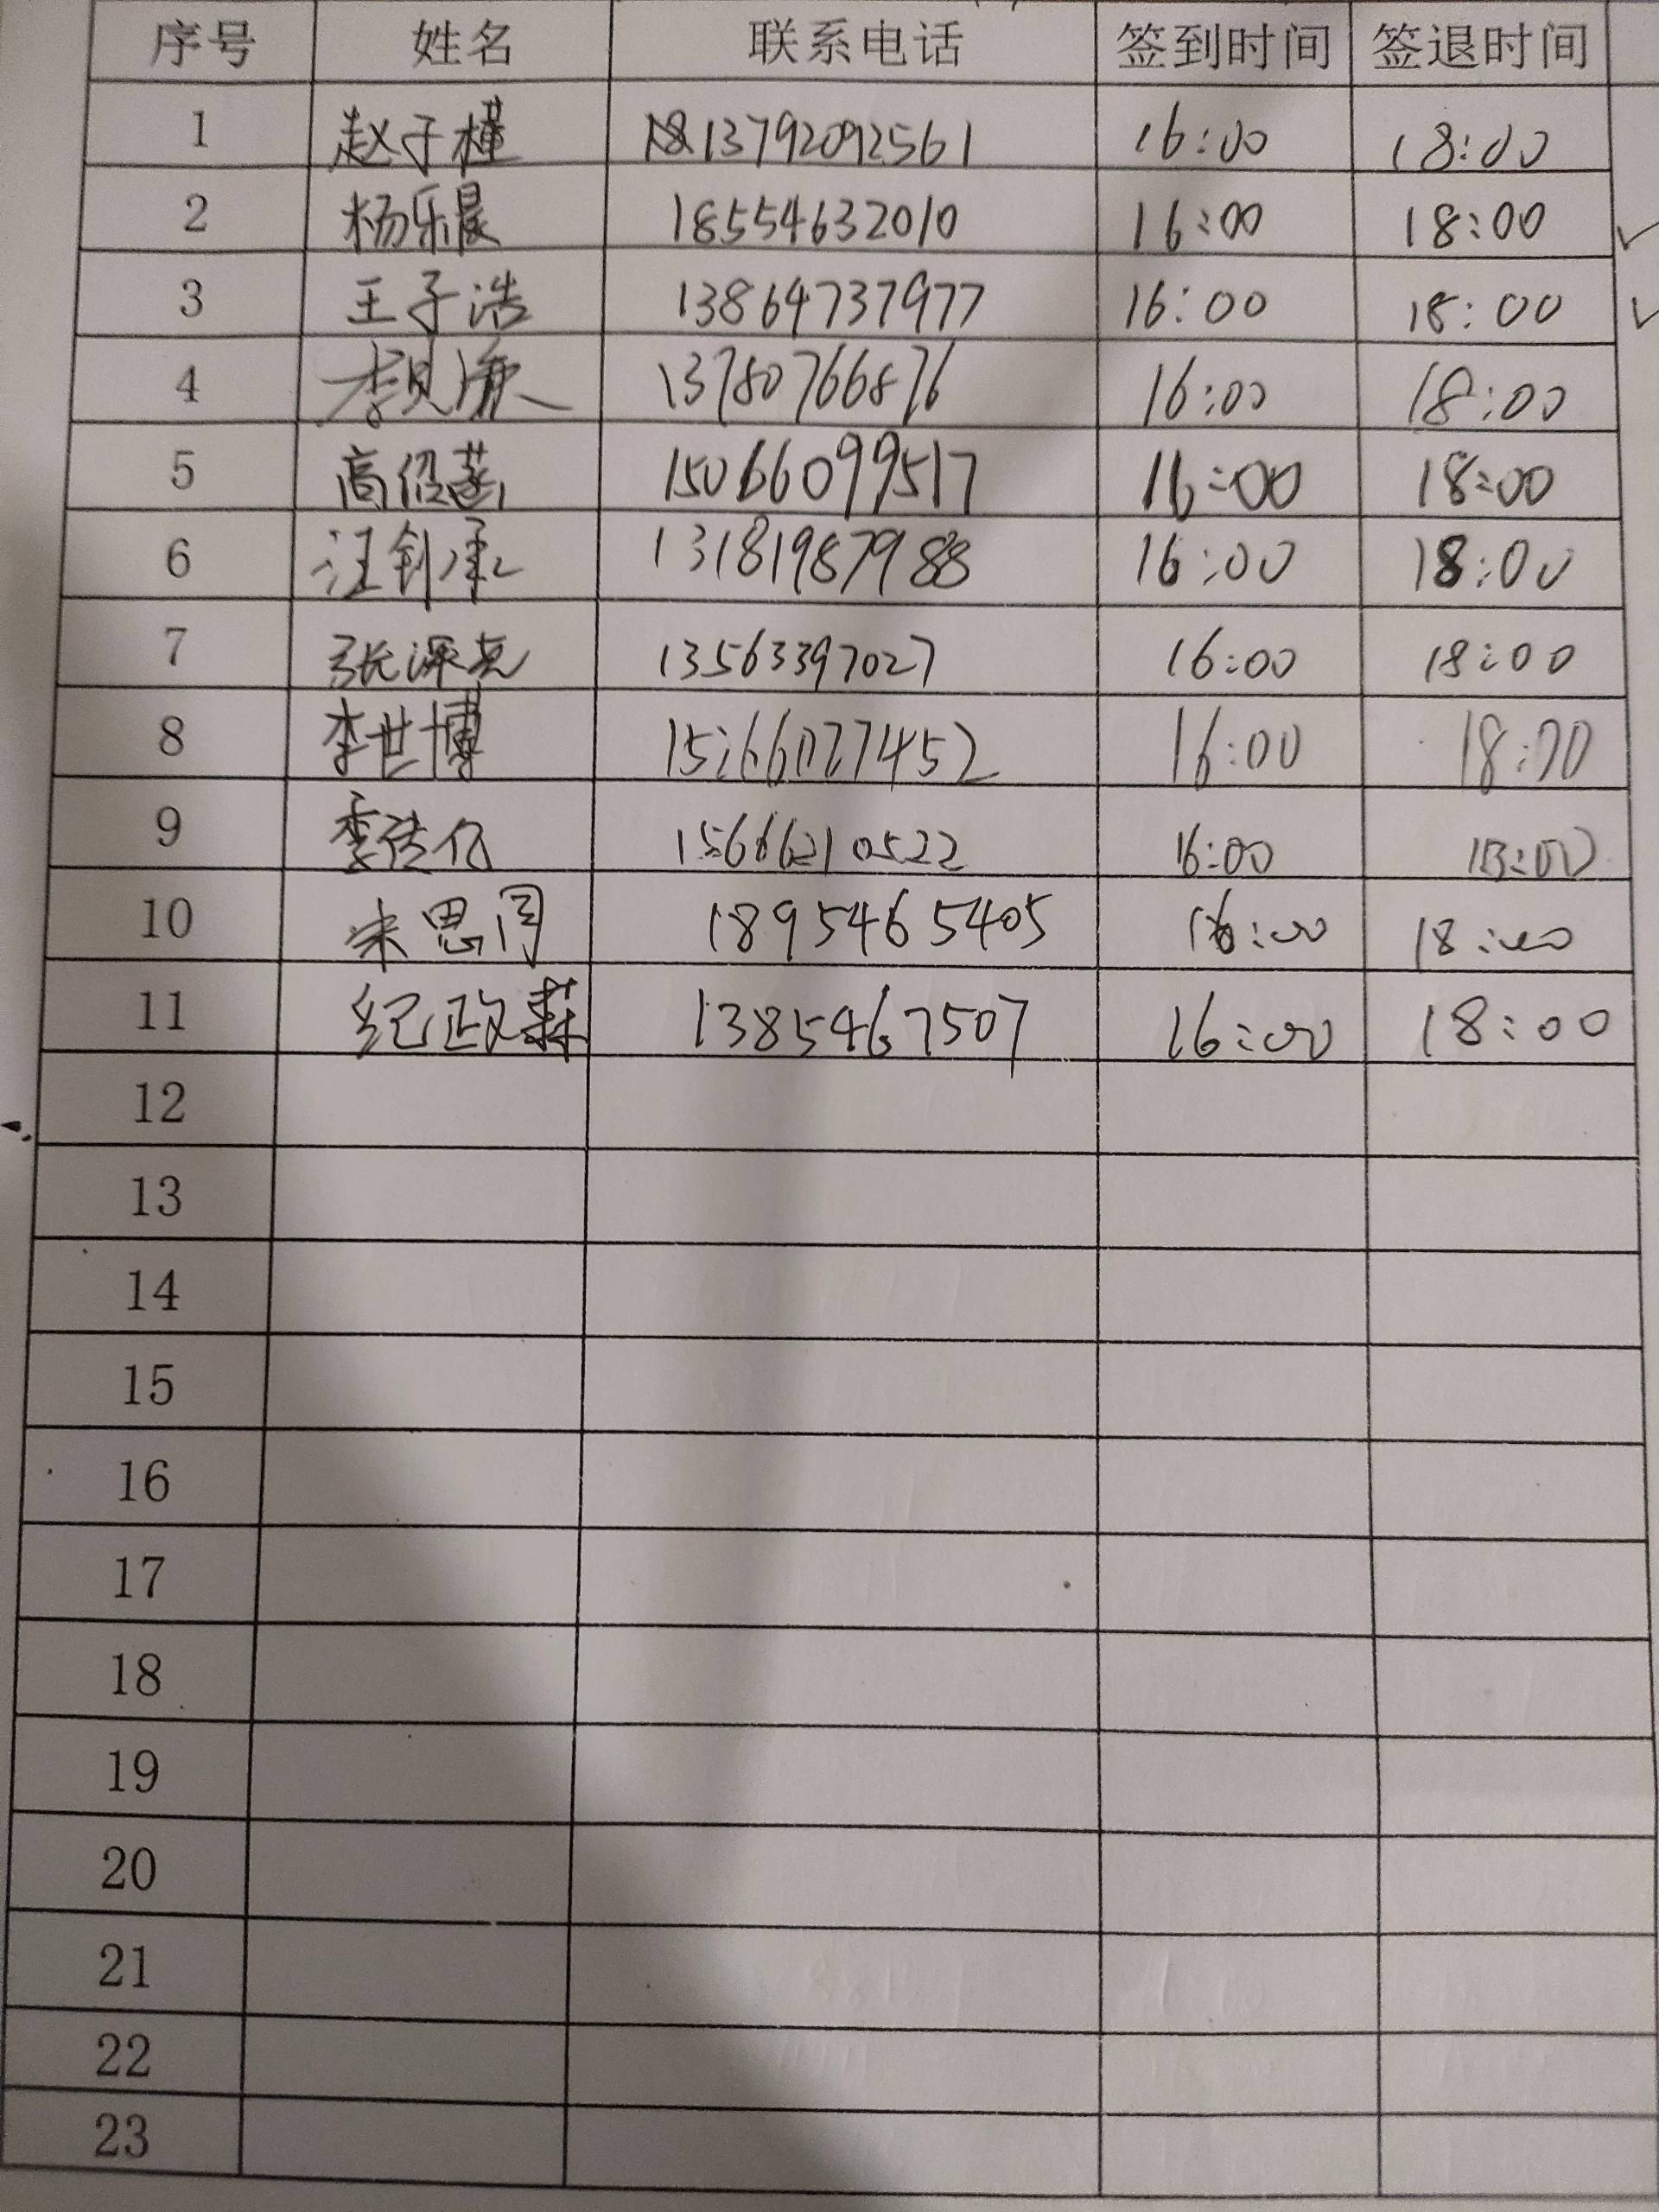 序号 姓名 联系电话 签到时间 签退时间
1 赵子槿 13792092561 16:00 18:00
2 杨乐晨 18554632010 16:00 18:00 ✓
3 王子浩 13864737977 16:00 18:00 ✓
4 李 13780766876 16:00 18:00
5 高绍 15066099517 16:00 18:00
6 汪钊 13181987988 16:00 18:00
7 张深亮 13563397027 16:00 18:00
8 李世博 16:00 18:00
9 李 15666210522 16:00 18:00
10 朱思同 18954665405 16:00 18:00
11 纪政霖 13854667507 16:00 18:00
12
13
14
15
16
17
18
19
20
21
22
23